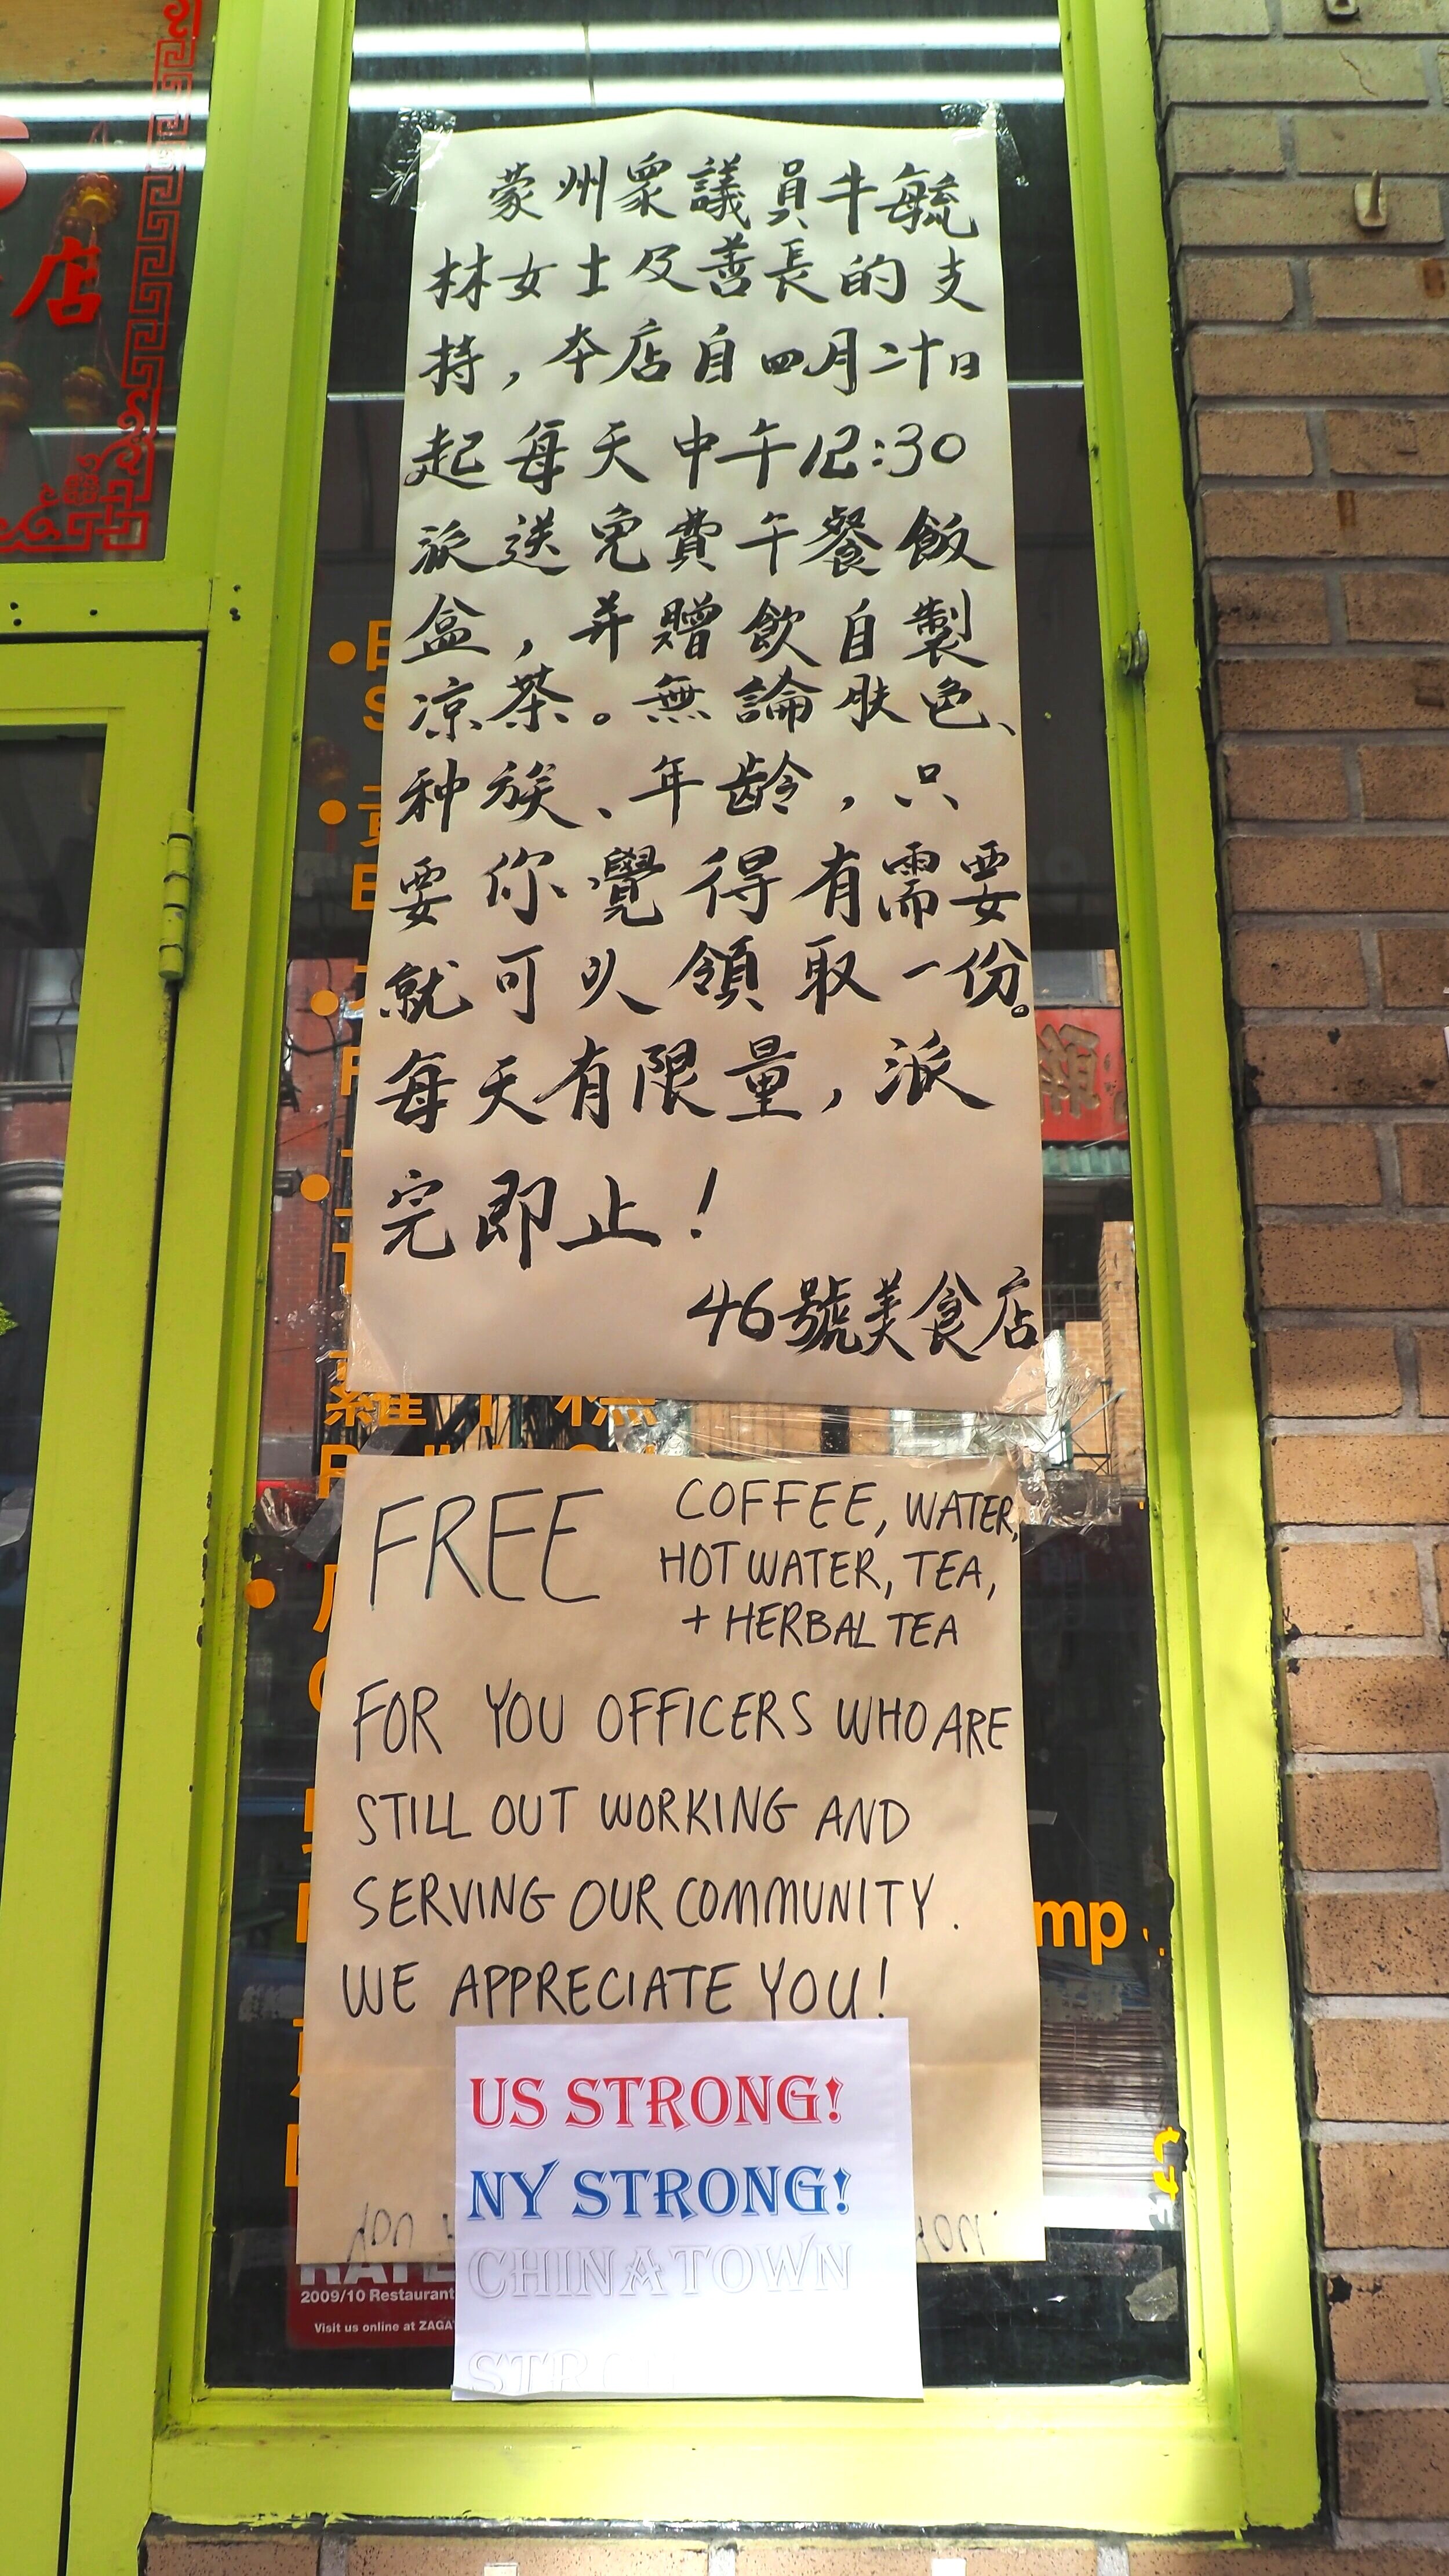 店
蒙州眾議員牛毓
林女士及善長的支
持,本店自四月二十日
起每天中午12:30
派送免費午餐飯
盒,并贈飲自製
凉茶。無論肤色、
种族、年齡,只
要你覺得有需要
就可以領取一份。
每天有限量,派
完即止!
46號美食店
FREE COFFEE, WATER,
HOT WATER, TEA,
+ HERBAL TEA
FOR YOU OFFICERS WHO ARE
STILL OUT WORKING AND
SERVING OUR COMMUNITY.
WE APPRECIATE YOU!
US STRONG!
NY STRONG!
CHINATOWN
2009/10 Restaurant
Visit us online at